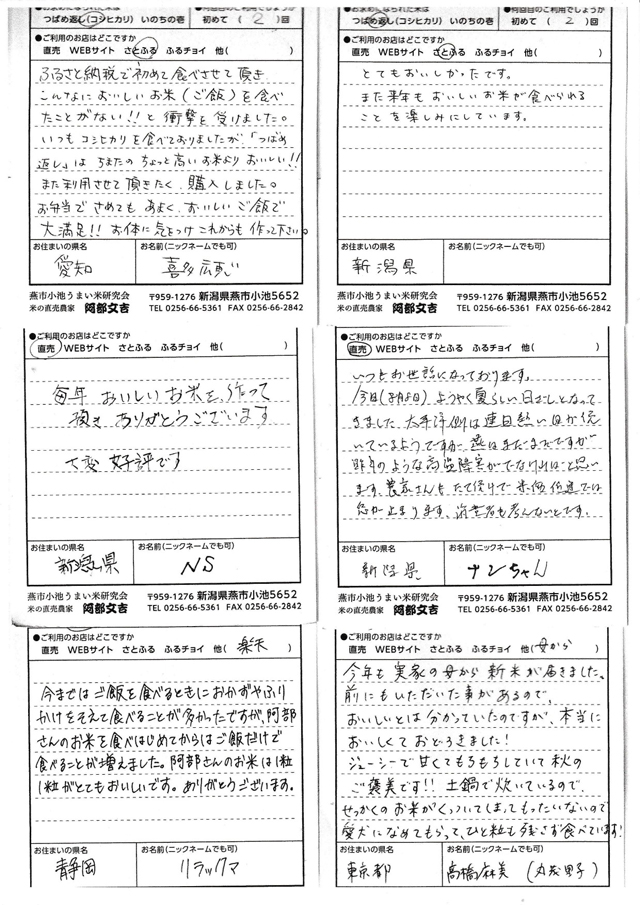 つばめ返し(コシヒカリ) いのちの壱
初めて( 2 )回
●ご利用のお店はどこですか
直売 WEBサイト さとふる ふるチョイ 他( )
ふるさと納税で初めて食べさせて頂き
こんなにおいしいお米(ご飯)を食べ
たことがない!!と衝撃を受けました。
いつもコシヒカリを食べておりましたが、「つばめ
返し」はちまたのちょっと高いお米よりおいしい!!
また利用させて頂きたく、購入しました。
お弁当でさめてもあまく、おいしいご飯で
大満足!!お体に気をつけこれからも作って下さい。
お住まいの県名 お名前(ニックネームでも可)
愛知 喜多
燕市小池うまい米研究会 〒959-1276 新潟県燕市小池5652
米の直売農家 阿部文吉 TEL 0256-66-5361 FAX 0256-66-2842
つばめ返し(コシヒカリ) いのちの壱
初めて( 2 )回
●ご利用のお店はどこですか
直売 WEBサイト さとふる ふるチョイ 他( )
とてもおいしかったです。
また来年もおいしいお米が食べられる
ことを楽しみにしています。
お住まいの県名 お名前(ニックネームでも可)
新潟県
燕市小池うまい米研究会 〒959-1276 新潟県燕市小池5652
米の直売農家 阿部文吉 TEL 0256-66-5361 FAX 0256-66-2842
●ご利用のお店はどこですか
直売 WEBサイト さとふる ふるチョイ 他( )
毎年おいしいお米を、作って
頂きありがとうございます
大変好評です
お住まいの県名 お名前(ニックネームでも可)
新潟県 NS
燕市小池うまい米研究会 〒959-1276 新潟県燕市小池5652
米の直売農家 阿部文吉 TEL 0256-66-5361 FAX 0256-66-2842
●ご利用のお店はどこですか
直売 WEBサイト さとふる ふるチョイ 他( )
いつもお世話になっております。
ようやく夏らしい日ざしとなって
きました。太平洋側は連日熱い日が続
いているようですが、燕はまだまだですが
昨年のような高温障害がでなければと思い
ます。農家さんも
が止まります。消費者も考えないとです。
お住まいの県名 お名前(ニックネームでも可)
新潟県 ナンちゃん
燕市小池うまい米研究会 〒959-1276 新潟県燕市小池5652
米の直売農家 阿部文吉 TEL 0256-66-5361 FAX 0256-66-2842
●ご利用のお店はどこですか
直売 WEBサイト さとふる ふるチョイ 他( 楽天 )
今まではご飯を食べるときにおかずやふり
かけをそえて食べることが多かったですが、阿部
さんのお米を食べはじめてからはご飯だけで
食べることが増えました。阿部さんのお米は1粒
1粒がとてもおいしいです。ありがとうございます。
お住まいの県名 お名前(ニックネームでも可)
静岡 リラックマ
●ご利用のお店はどこですか
直売 WEBサイト さとふる ふるチョイ 他( 母から )
今年も実家の母から新米が届きました。
前にもいただいた事があるので、
おいしいとは分かっていたのですが、本当に
おいしくておどろきました!
ジューシーで甘くてもちもちしていて秋の
ご褒美です!!土鍋で炊いているので、
せっかくのお米がくっついてしまってもったいないので
愛犬になめてもらって、ひと粒も残さず食べています!
お住まいの県名 お名前(ニックネームでも可)
東京都 高橋麻美